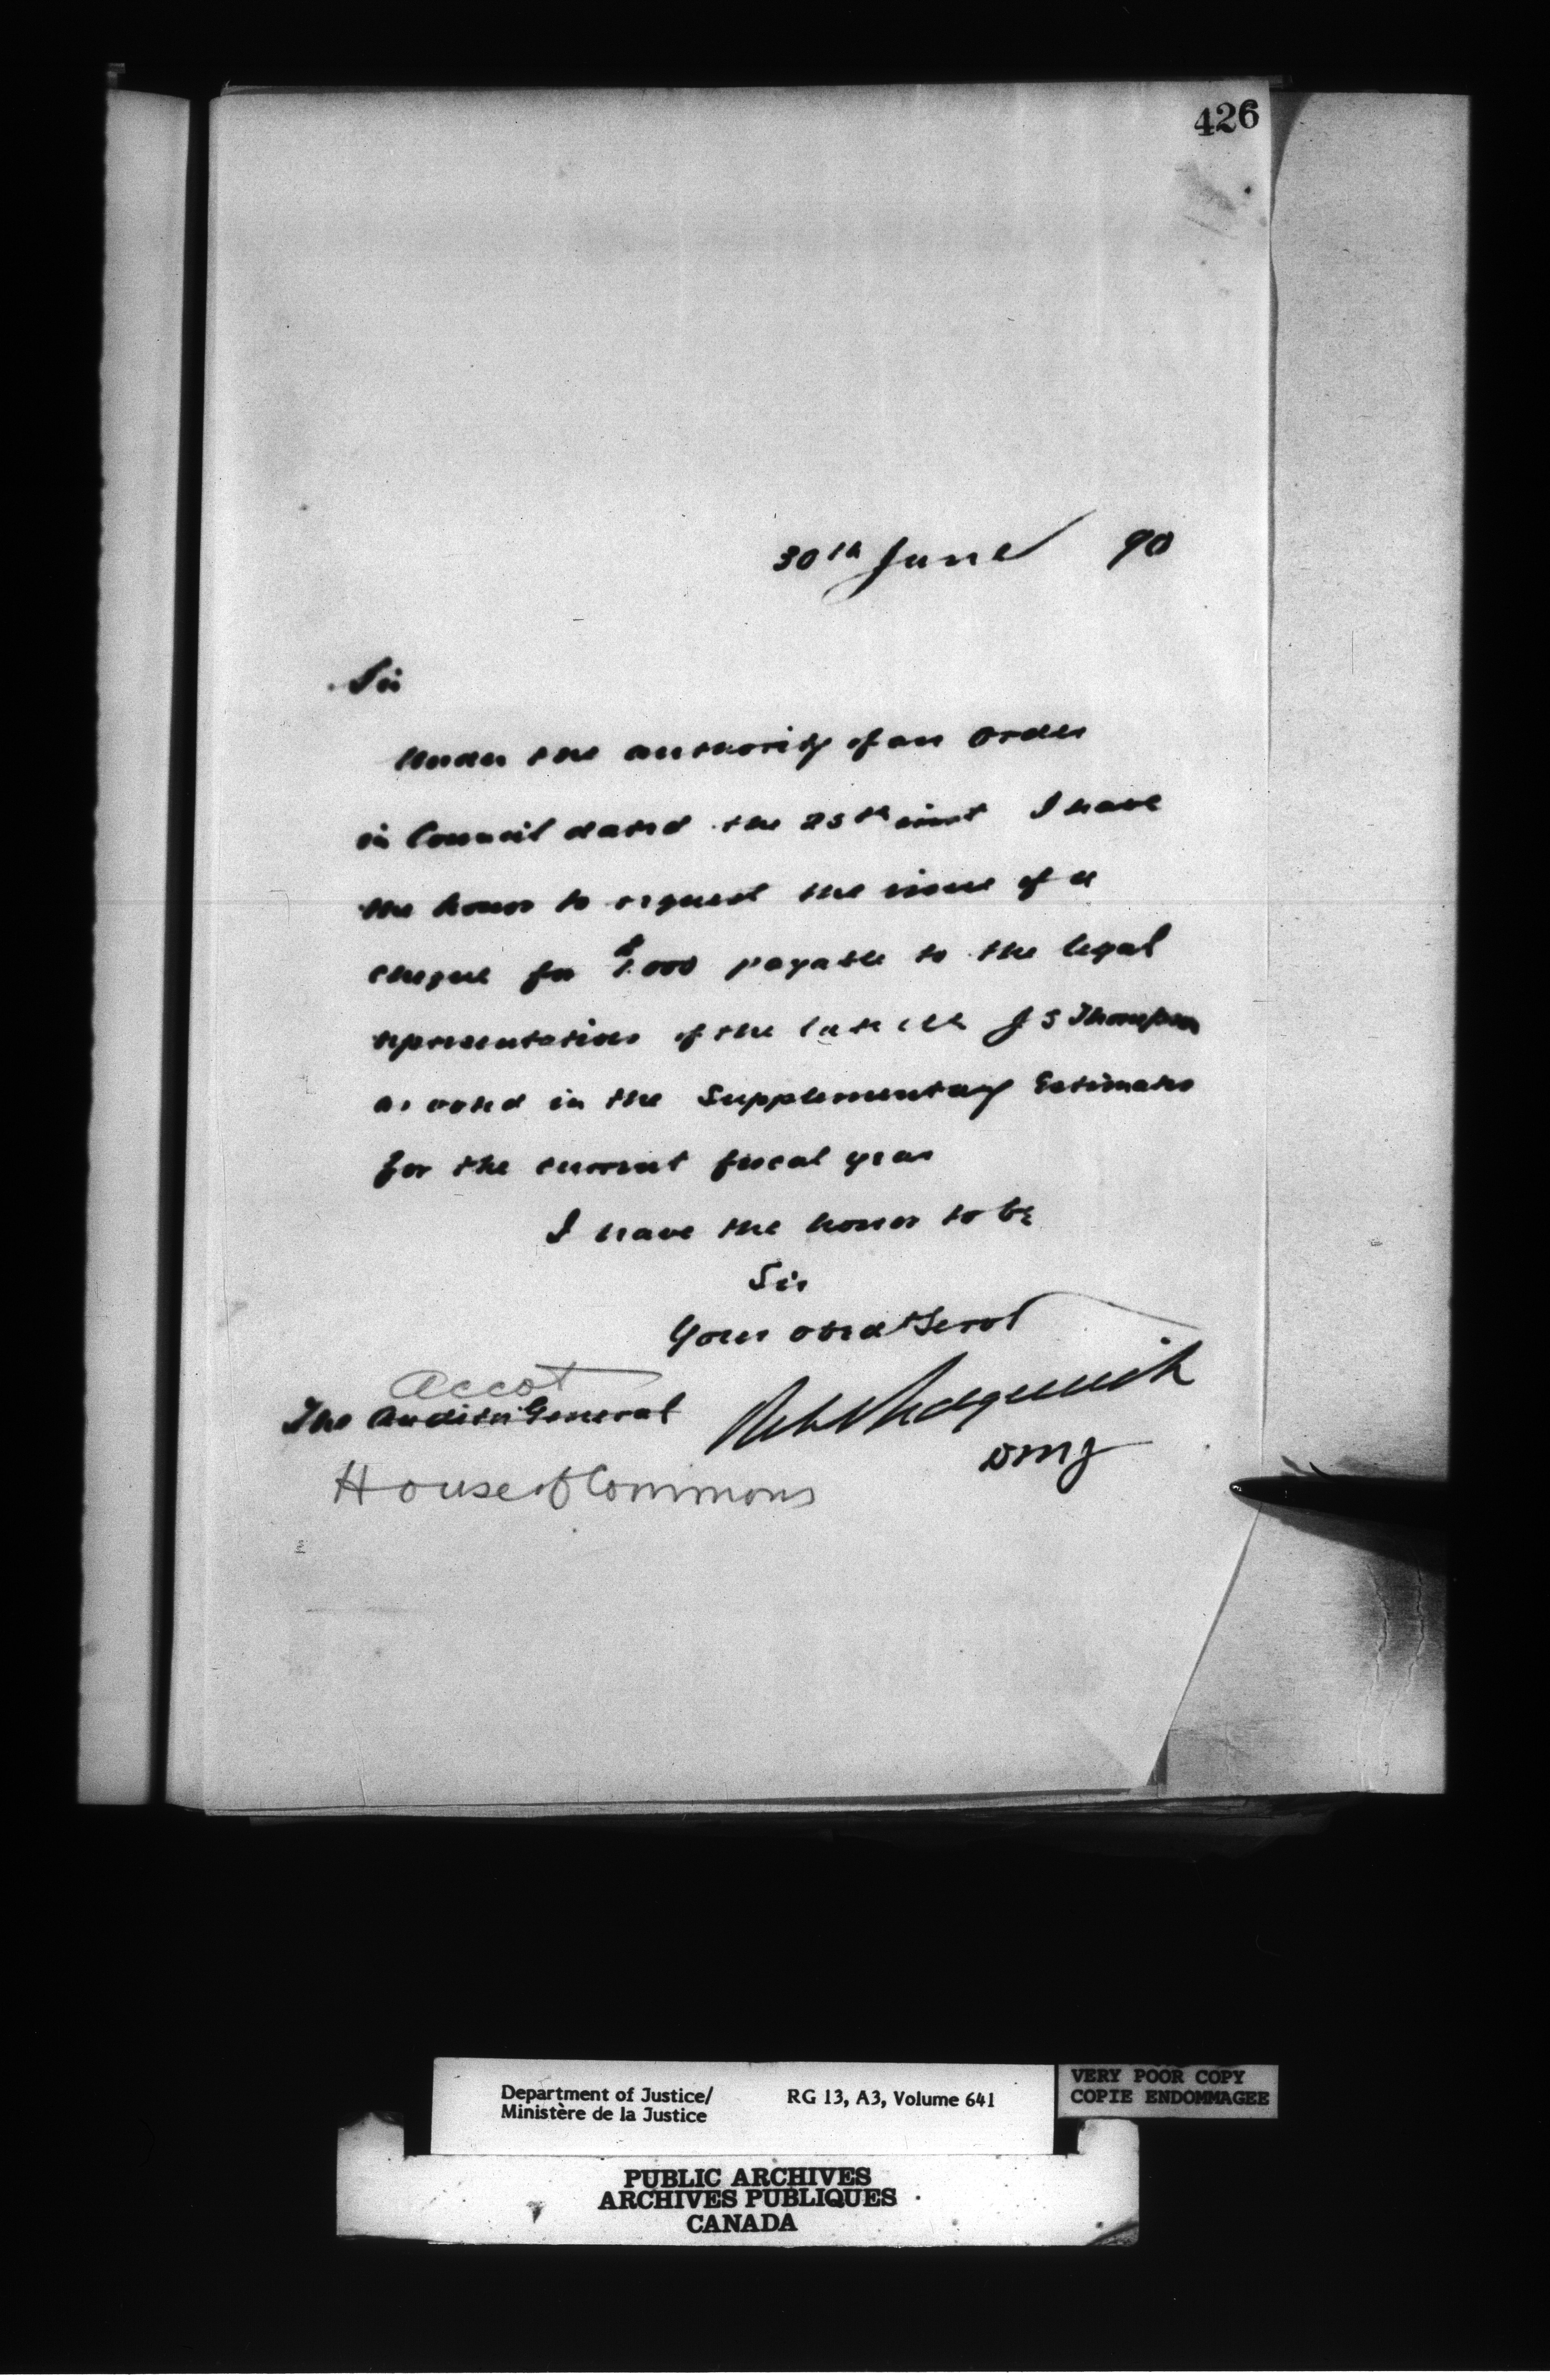 426
30th June 90
Sir
Under the authority of an Order
in Council dated the 25th inst I have
the honor to request the issue of a
cheque for $1.000 payable to the legal
representatives of the late Mr J S Thompson
as voted in the Supplementary Estimates
for the current fiscal year
I have the honor to be
Sir
Your obedt Servt
Accot
The Auditor General
Robt Sedgewick
DMJ
House of Commons
Department of Justice/
Ministère de la Justice
RG 13, A3, Volume 641
VERY POOR COPY
COPIE ENDOMMAGEE
PUBLIC ARCHIVES
ARCHIVES PUBLIQUES
CANADA